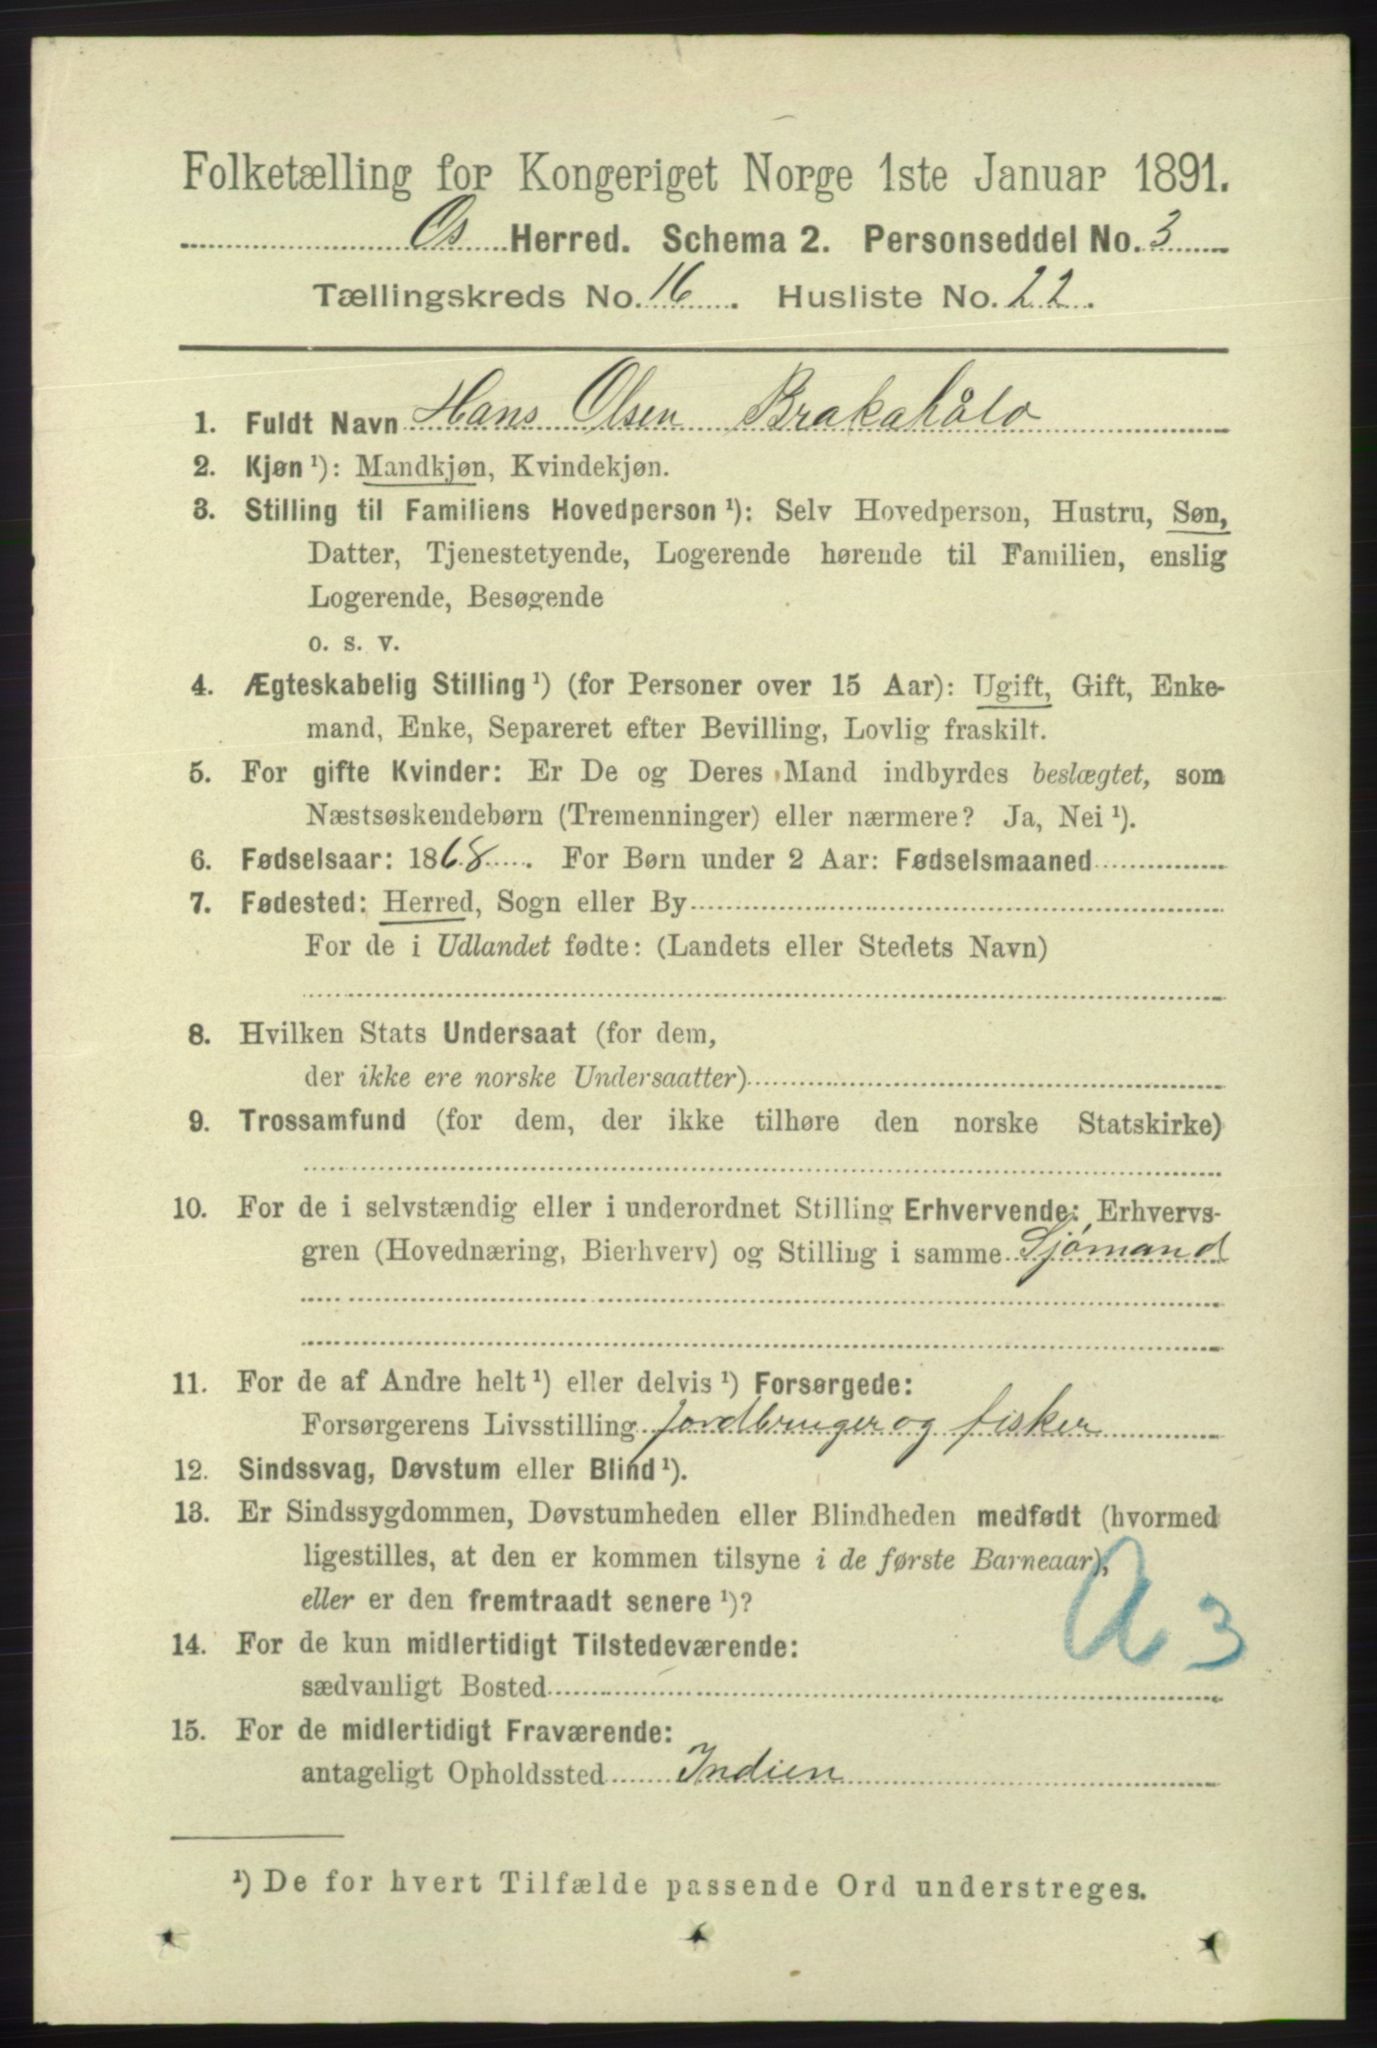 Folketælling for Kongeriget Norge 1ste Januar 1891.
Os Herred. Schema 2. Personseddel No. 3
Tællingskreds No. 16. Husliste No. 22.
1. Fuldt Navn Hans Olsen Brakahålo
2. Kjøn ¹): Mandkjøn, Kvindekjøn.
3. Stilling til Familiens Hovedperson ¹): Selv Hovedperson, Hustru, Søn,
Datter, Tjenestetyende, Logerende hørende til Familien, enslig
Logerende, Besøgende
o. s. v.
4. Ægteskabelig Stilling ¹) (for Personer over 15 Aar): Ugift, Gift, Enke-
mand, Enke, Separeret efter Bevilling, Lovlig fraskilt.
5. For gifte Kvinder: Er De og Deres Mand indbyrdes beslægtet, som
Næstsøskendebørn (Tremenninger) eller nærmere? Ja, Nei ¹).
6. Fødselsaar: 1868. For Børn under 2 Aar: Fødselsmaaned
7. Fødested: Herred, Sogn eller By
For de i Udlandet fødte: (Landets eller Stedets Navn)
8. Hvilken Stats Undersaat (for dem,
der ikke ere norske Undersaatter)
9. Trossamfund (for dem, der ikke tilhøre den norske Statskirke)
10. For de i selvstændig eller i underordnet Stilling Erhvervende: Erhvervs-
gren (Hovednæring, Bierhverv) og Stilling i samme Sjømand
11. For de af Andre helt ¹) eller delvis ¹) Forsørgede:
Forsørgerens Livsstilling Jordbruger og fisker
12. Sindssvag, Døvstum eller Blind ¹).
13. Er Sindssygdommen, Døvstumheden eller Blindheden medfødt (hvormed
ligestilles, at den er kommen tilsyne i de første Barneaar),
eller er den fremtraadt senere ¹)?
A 3
14. For de kun midlertidigt Tilstedeværende:
sædvanligt Bosted
15. For de midlertidigt Fraværende:
antageligt Opholdssted Indien
¹) De for hvert Tilfælde passende Ord understreges.